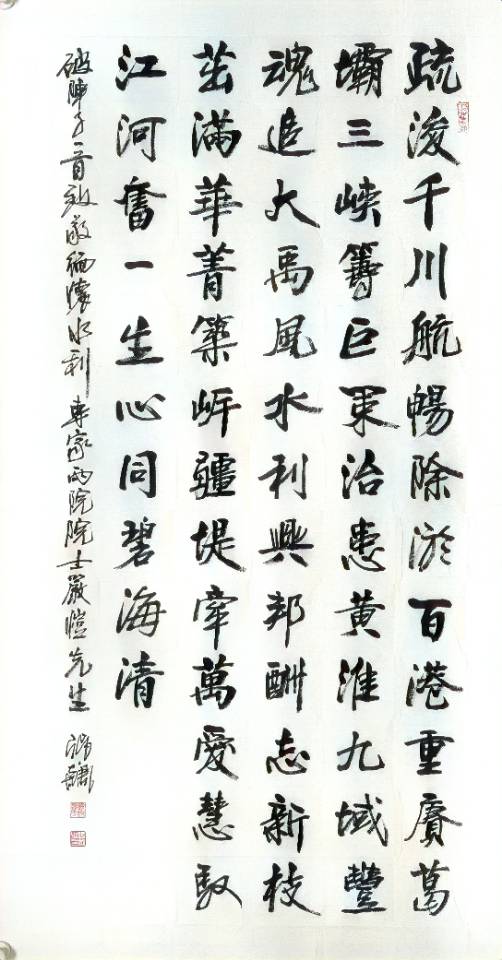 疏浚千川航暢除淤百港重賡葛
壩三峽籌巨策治患黃淮九域豐
魂追大禹風水利興邦酬志新枝
茁滿華菁築岍疆堤牽萬愛慧馭
江河奮一生心同碧海清
破陣子一首致敬緬懷水利專家兩院院士嚴愷先生